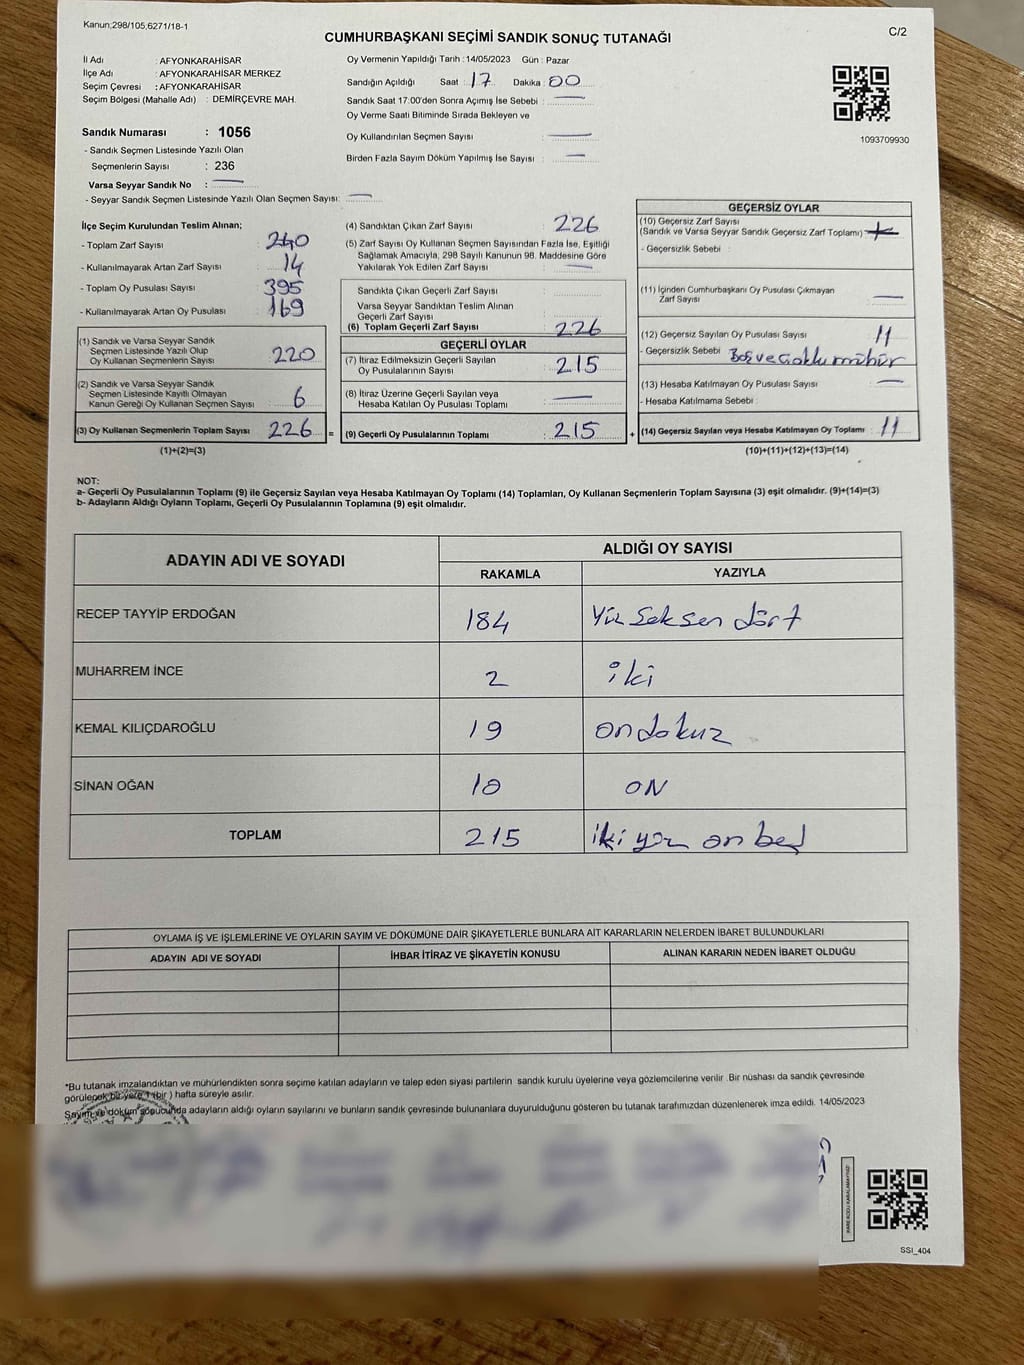 Kanun;298/105,6271/18-1
C/2
CUMHURBAŞKANI SEÇİMİ SANDIK SONUÇ TUTANAĞI
İl Adı : AFYONKARAHİSAR
İlçe Adı : AFYONKARAHİSAR MERKEZ
Seçim Çevresi : AFYONKARAHİSAR
Seçim Bölgesi (Mahalle Adı) : DEMİRÇEVRE MAH.
Sandık Numarası : 1056
- Sandık Seçmen Listesinde Yazılı Olan
Seçmenlerin Sayısı : 236
Varsa Seyyar Sandık No :
- Seyyar Sandık Seçmen Listesinde Yazılı Olan Seçmen Sayısı:
Oy Vermenin Yapıldığı Tarih : 14/05/2023 Gün : Pazar
Sandığın Açıldığı Saat : 17 Dakika : 00
Sandık Saat 17:00'den Sonra Açımış İse Sebebi :
Oy Verme Saati Bitiminde Sırada Bekleyen ve
Oy Kullandırılan Seçmen Sayısı :
Birden Fazla Sayım Döküm Yapılmış İse Sayısı :
1093709930
İlçe Seçim Kurulundan Teslim Alınan;
- Toplam Zarf Sayısı : 240
- Kullanılmayarak Artan Zarf Sayısı : 14
- Toplam Oy Pusulası Sayısı : 395
- Kullanılmayarak Artan Oy Pusulası : 169
(1) Sandık ve Varsa Seyyar Sandık
Seçmen Listesinde Yazılı Olup
Oy Kullanan Seçmenlerin Sayısı : 220
(2) Sandık ve Varsa Seyyar Sandık
Seçmen Listesinde Kayıtlı Olmayan
Kanun Gereği Oy Kullanan Seçmen Sayısı : 6
(3) Oy Kullanan Seçmenlerin Toplam Sayısı : 226 =
(1)+(2)=(3)
(4) Sandıktan Çıkan Zarf Sayısı : 226
(5) Zarf Sayısı Oy Kullanan Seçmen Sayısından Fazla İse, Eşitliği
Sağlamak Amacıyla, 298 Sayılı Kanunun 98. Maddesine Göre
Yakılarak Yok Edilen Zarf Sayısı :
Sandıkta Çıkan Geçerli Zarf Sayısı :
Varsa Seyyar Sandıktan Teslim Alınan
Geçerli Zarf Sayısı :
(6) Toplam Geçerli Zarf Sayısı : 226
GEÇERLİ OYLAR
(7) İtiraz Edilmeksizin Geçerli Sayılan
Oy Pusulalarının Sayısı : 215
(8) İtiraz Üzerine Geçerli Sayılan veya
Hesaba Katılan Oy Pusulası Toplamı :
(9) Geçerli Oy Pusulalarının Toplamı : 215 +
GEÇERSİZ OYLAR
(10) Geçersiz Zarf Sayısı
(Sandık ve Varsa Seyyar Sandık Geçersiz Zarf Toplamı) :
- Geçersizlik Sebebi :
(11) İçinden Cumhurbaşkanı Oy Pusulası Çıkmayan
Zarf Sayısı :
(12) Geçersiz Sayılan Oy Pusulası Sayısı : 11
- Geçersizlik Sebebi : Boş ve Çoklu mühür
(13) Hesaba Katılmayan Oy Pusulası Sayısı :
- Hesaba Katılmama Sebebi :
(14) Geçersiz Sayılan veya Hesaba Katılmayan Oy Toplamı : 11
(10)+(11)+(12)+(13)=(14)
NOT:
a- Geçerli Oy Pusulalarının Toplamı (9) ile Geçersiz Sayılan veya Hesaba Katılmayan Oy Toplamı (14) Toplamları, Oy Kullanan Seçmenlerin Toplam Sayısına (3) eşit olmalıdır. (9)+(14)=(3)
b- Adayların Aldığı Oyların Toplamı, Geçerli Oy Pusulalarının Toplamına (9) eşit olmalıdır.
ADAYIN ADI VE SOYADI
ALDIĞI OY SAYISI
RAKAMLA YAZIYLA
RECEP TAYYİP ERDOĞAN 184 Yüz Seksen dört
MUHARREM İNCE 2 iki
KEMAL KILIÇDAROĞLU 19 on dokuz
SİNAN OĞAN 10 ON
TOPLAM 215 iki yüz on beş
OYLAMA İŞ VE İŞLEMLERİNE VE OYLARIN SAYIM VE DÖKÜMÜNE DAİR ŞİKAYETLERLE BUNLARA AİT KARARLARIN NELERDEN İBARET BULUNDUKLARI
ADAYIN ADI VE SOYADI İHBAR İTİRAZ VE ŞİKAYETİN KONUSU ALINAN KARARIN NEDEN İBARET OLDUĞU
*Bu tutanak imzalandıktan ve mühürlendikten sonra seçime katılan adayların ve talep eden siyasi partilerin sandık kurulu üyelerine veya gözlemcilerine verilir .Bir nüshası da sandık çevresinde
görülecek bir yere 1 (bir ) hafta süreyle asılır.
Sayım ve döküm sonucunda adayların aldığı oyların sayılarını ve bunların sandık çevresinde bulunanlara duyurulduğunu gösteren bu tutanak tarafımızdan düzenlenerek imza edildi. 14/05/2023
KARE KODU KARALAMAYINIZ!
SSI_404